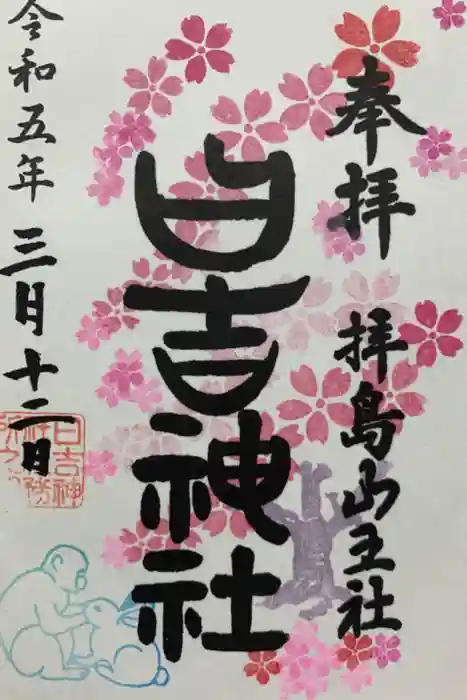 奉拝
拝島山王社
日吉神社
令和五年三月十二日
日吉神
社務
所之